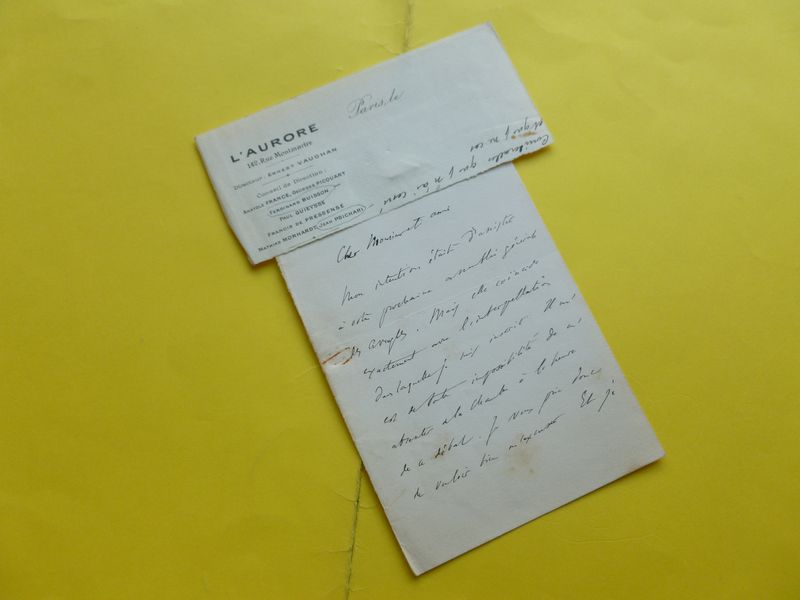 Paris, le
L'AURORE
142, Rue Montmartre
Directeur: ERNEST VAUGHAN
Conseil de Direction:
ANATOLE FRANCE, GEORGES PICQUART
FERDINAND BUISSON
PAUL GUIEYSSE
FRANCIS DE PRESSENSÉ
MATHIAS MORHARDT, JEAN PSICHARI
que je n'ai
Cher Monsieur et ami
Mon intention était d'assister
à votre prochaine assemblée générale
des aveugles. Mais elle coïncide
exactement avec l'interpellation
dans laquelle je suis inscrit. Il m'
est de toute impossibilité de m'
absenter de la Chambre à l'heure
de ce débat. Je vous prie donc
de vouloir bien m'excuser. Et je